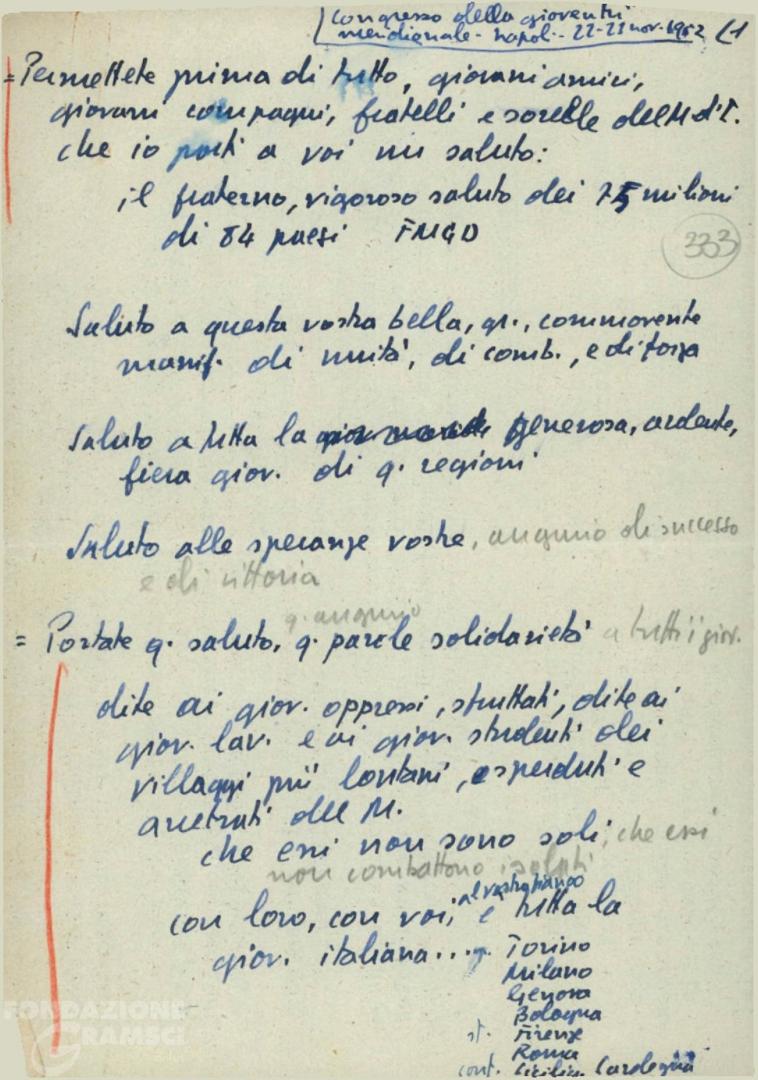 Congresso della gioventù
meridionale - Napoli - 22-23 nov. 1952 (1
= Permettete prima di tutto, giovani amici,
giovani compagni, fratelli e sorelle del M. d'I.
che io porti a voi un saluto:
il fraterno, vigoroso saluto dei 75 milioni
di 84 paesi FMGD
333
Saluto a questa vostra bella, gr., commovente
manif. di unità, di comb., e di forza
Saluto a tutta la generosa, ardente,
fiera giov. di q. regioni
Saluto alle speranze vostre, augurio di successo
e di vittoria
q. augurio
= Portate q. saluto, q. parole solidarietà a tutti i giov.
dite ai giov. oppressi, sfruttati, dite ai
giov. lav. e ai giov. studenti dei
villaggi più lontani, sperduti e
arretrati del M.
che essi non sono soli, che essi
non combattono isolati
al vostro fianco
con loro, con voi, è tutta la
giov. italiana...
Torino
Milano
Genova
Bologna
st. Firenze
Roma
cont. Sicilia Sardegna
FONDAZIONE
GRAMSCI